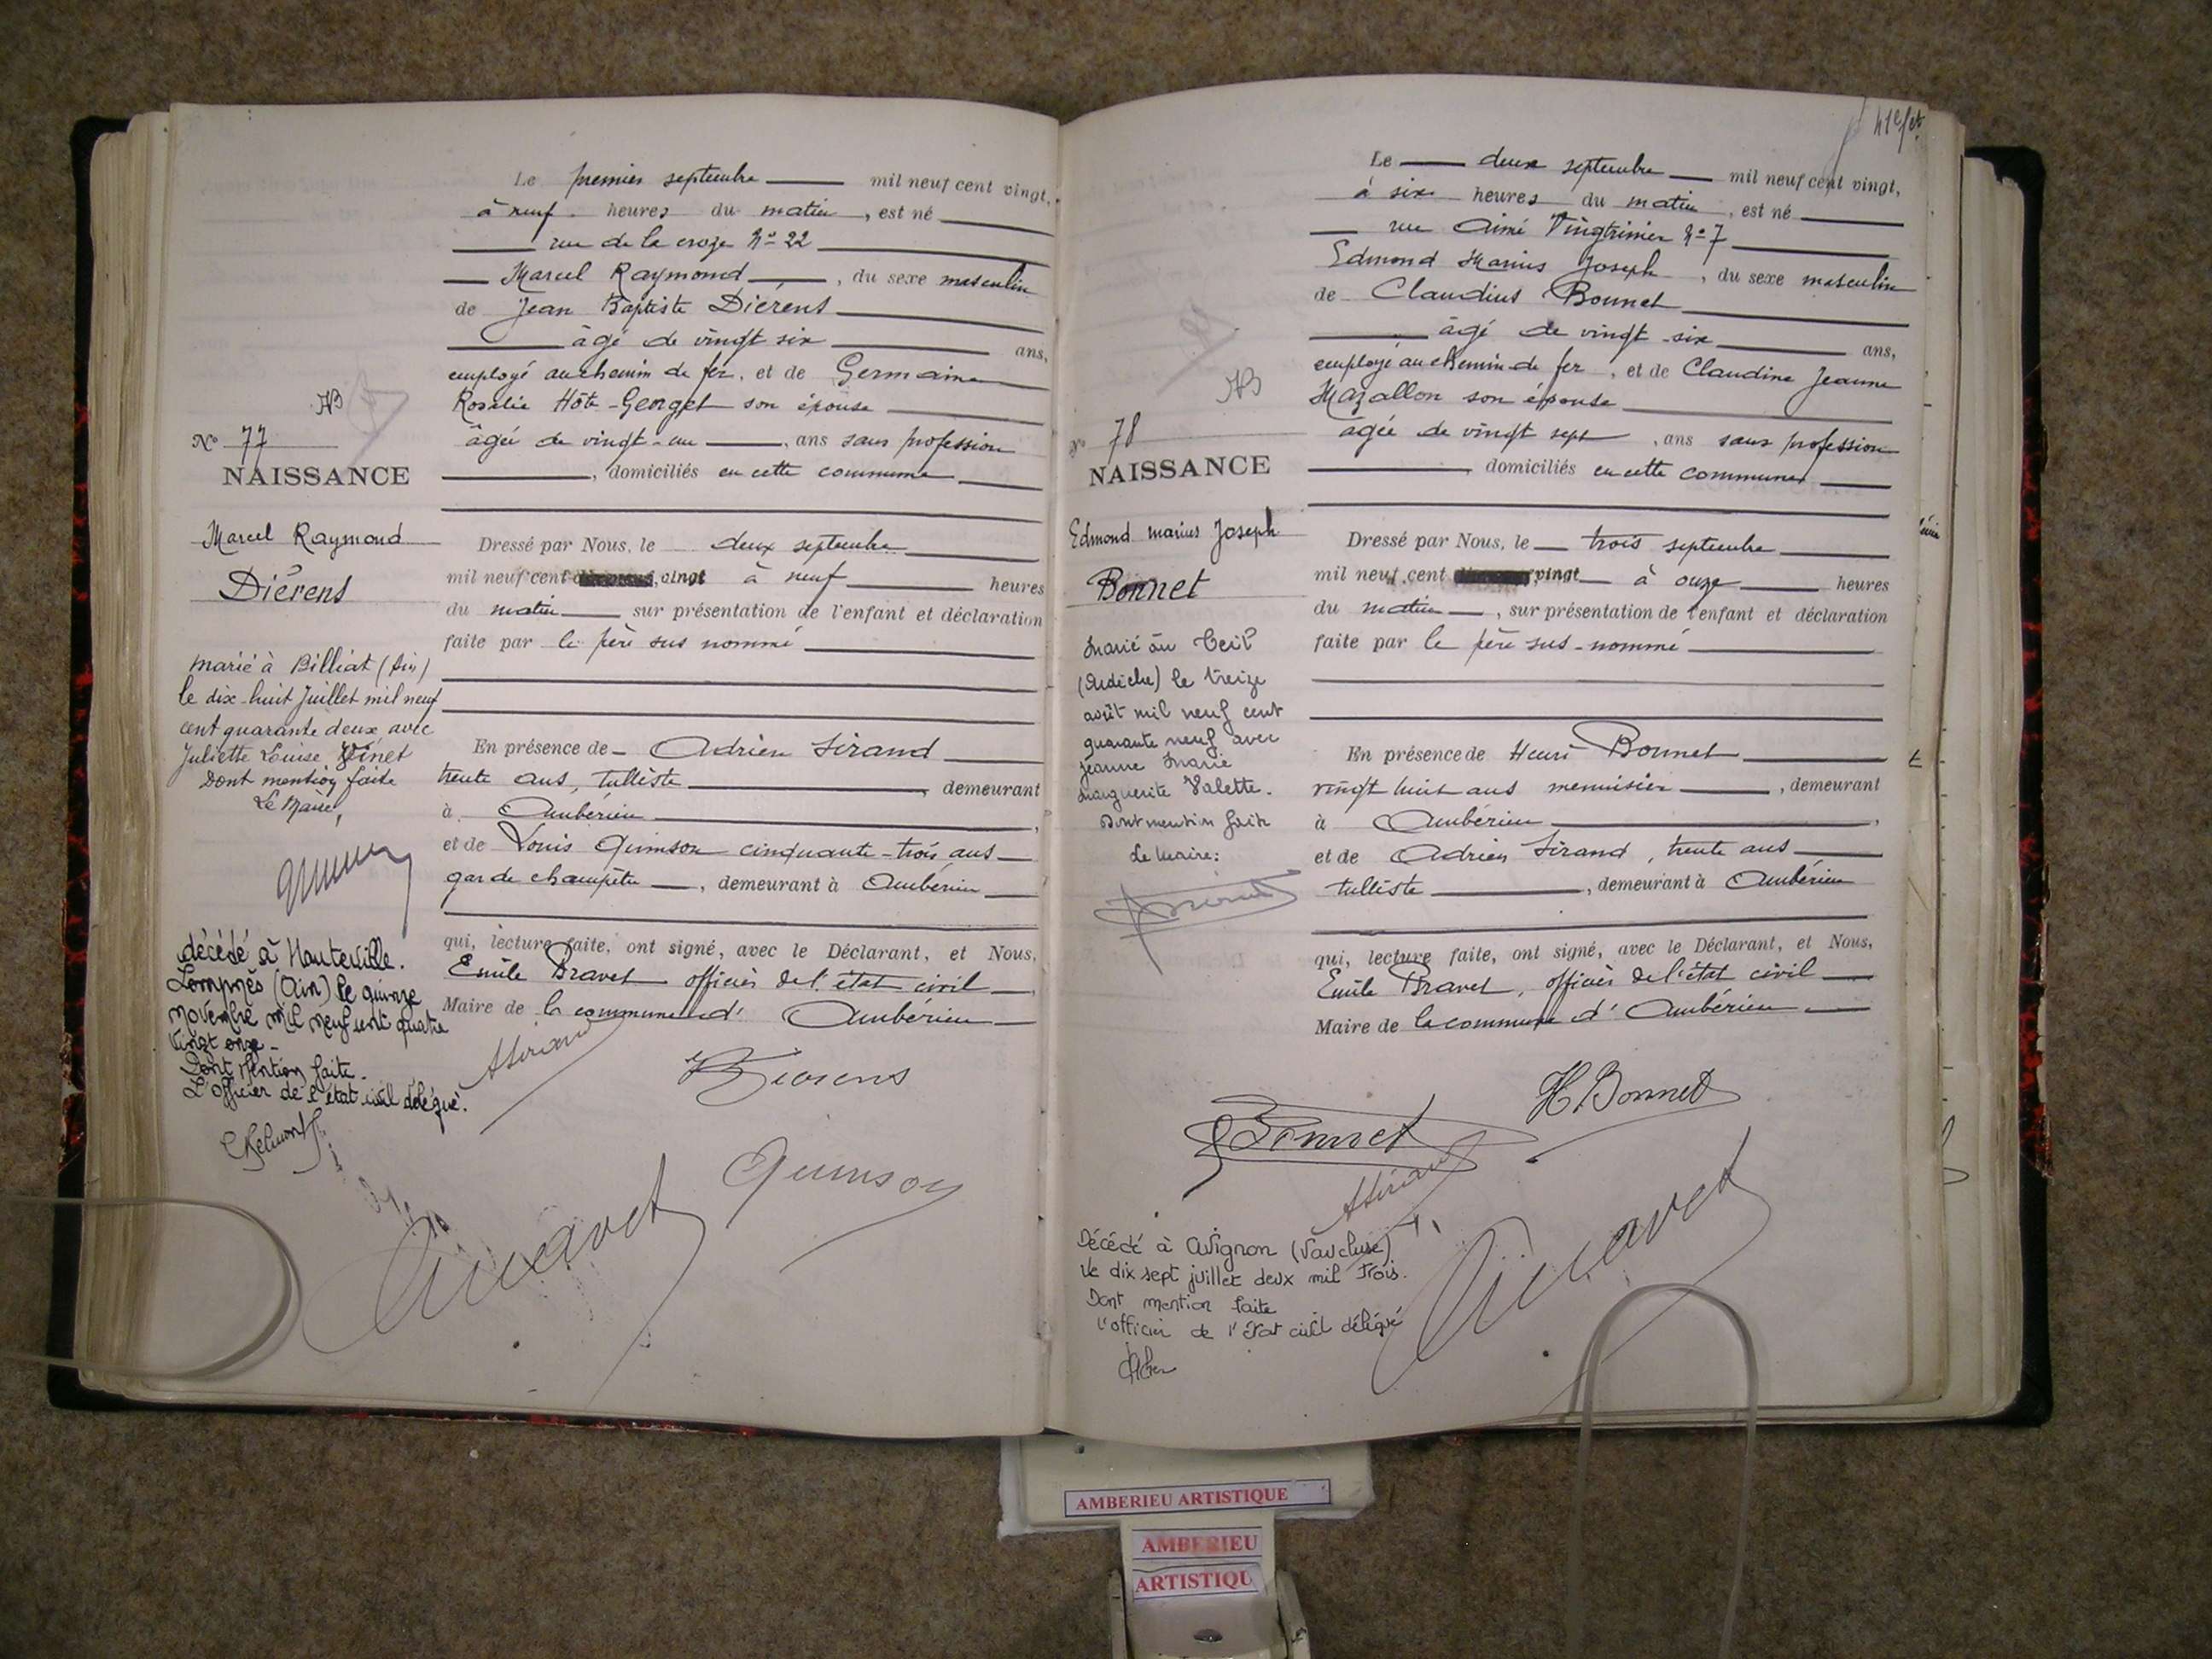 Le premier septembre mil neuf cent vingt,
à neuf heures du matin, est né
rue de la croze N° 22
Marcel Raymond, du sexe masculin
de Jean Baptiste Diérens
âgé de vingt six ans,
employé au chemin de fer, et de Germaine
Rosalie Hôte-Georget son épouse
âgée de vingt-un, ans sans profession
, domiciliés en cette commune
N° 77
NAISSANCE
Marcel Raymond
Diérens
Dressé par Nous, le deux septembre
mil neuf cent vingt à neuf heures
du matin sur présentation de l'enfant et déclaration
faite par le père sus nommé
marié à Billiat (Ain)
le dix-huit Juillet mil neuf
cent quarante deux avec
Juliette Louise
Dont mention faite
Le Maire,
En présence de Adrien Sirand
trente ans, tulliste, demeurant
à Ambérieu,
et de Louis Quinson cinquante-trois ans
garde champêtre, demeurant à Ambérieu
décédé à Hauteville.
Lompnès (Ain) le quinze
novembre mil neuf cent quatre
vingt onze.
Dont Mention faite.
L'officier de l'état civil délégué.
qui, lecture faite, ont signé, avec le Déclarant, et Nous,
Emile Bravet officier de l'état civil,
Maire de la commune d' Ambérieu
ASirand
Diérens
Quinson
Bravet
41e ft
Le deux septembre mil neuf cent vingt,
à six heures du matin, est né
rue Aimé Vingtrinier N° 7
Edmond Marius Joseph, du sexe masculin
de Claudius Bonnet
âgé de vingt-six ans,
employé au chemin de fer, et de Claudine Jeanne
Mazallon son épouse
âgée de vingt sept, ans sans profession
, domiciliés en cette commune
N° 78
NAISSANCE
Edmond marius Joseph
Bonnet
Dressé par Nous, le trois septembre
mil neuf cent vingt à onze heures
du matin, sur présentation de l'enfant et déclaration
faite par le père sus-nommé
Marié au Teil
(Ardèche) le treize
août mil neuf cent
quarante neuf avec
Jeanne Marie
Marguerite Valette.
Dont mention faite
Le Maire:
En présence de Henri Bonnet
vingt huit ans menuisier, demeurant
à Ambérieu,
et de Adrien Sirand, trente ans
tulliste, demeurant à Ambérieu
qui, lecture faite, ont signé, avec le Déclarant, et Nous,
Emile Bravet, officier de l'état civil
Maire de la commune d' Ambérieu
H. Bonnet
Bonnet
ASirand
Bravet
Décédé à Avignon (Vaucluse)
le dix sept juillet deux mil trois.
Dont mention faite
l'officier de l'état civil délégué
AMBERIEU ARTISTIQUE
AMBERIEU
ARTISTIQU